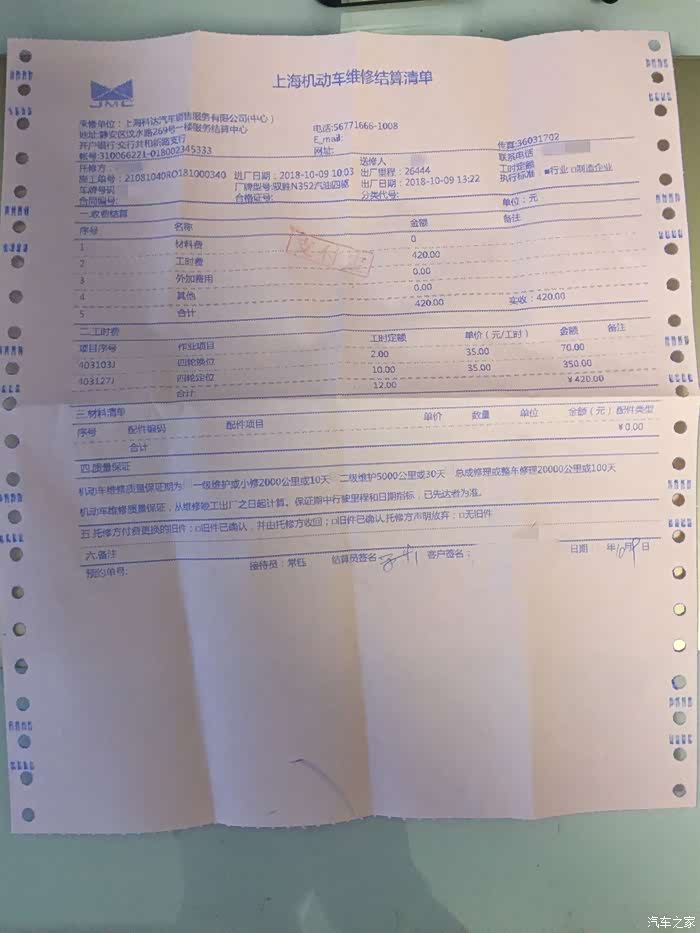 JMC
上海机动车维修结算清单
承修单位：上海科达汽车销售服务有限公司(中心)
地址:静安区汶水路269号一楼服务结算中心 电话:56771666-1008
开户银行:众行共和新路支行 E_mail:
帐号:310066221-018002345333 网址: 传真:36031702
托修方: 送修人 联系电话
施工单号：21081040RO181000340 进厂日期：2018-10-09 10:03 出厂里程：26444 工时定额 ■行业 □制造企业
车牌号码 厂牌型号:驭胜N352汽油四驱 出厂日期：2018-10-09 13:22 执行标准
合同编号: 合格证号: 分类代号: 单位：元
一.收费结算
序号 名称 金额 备注
1 材料费 0
2 工时费 420.00
3 外加费用 0.00
4 其他 0.00
5 合计 420.00 实收：420.00
二.工时费
项目序号 作业项目 工时定额 单价（元/工时） 金额 备注
403103J 四轮换位 2.00 35.00 70.00
403127J 四轮定位 10.00 35.00 350.00
合计 12.00 ￥420.00
三.材料清单
序号 配件编码 配件项目 单价 数量 单位 金额（元） 配件类型
合计 ￥0.00
四.质量保证
机动车维修质量保证期为: 一级维护或小修2000公里或10天 二级维护5000公里或30天 总成修理或整车修理20000公里或100天
机动车维修质量保证，从维修竣工出厂之日起计算。保证期中行驶里程和日期指标，已先达者为准。
五.托修方付费更换的旧件：□旧件已确认，并由托修方收回；□旧件已确认,托修方声明放弃；□无旧件
六.备注
预约单号: 接待员：常钰 结算员签名 客户签名； 日期 年10月9日
汽车之家